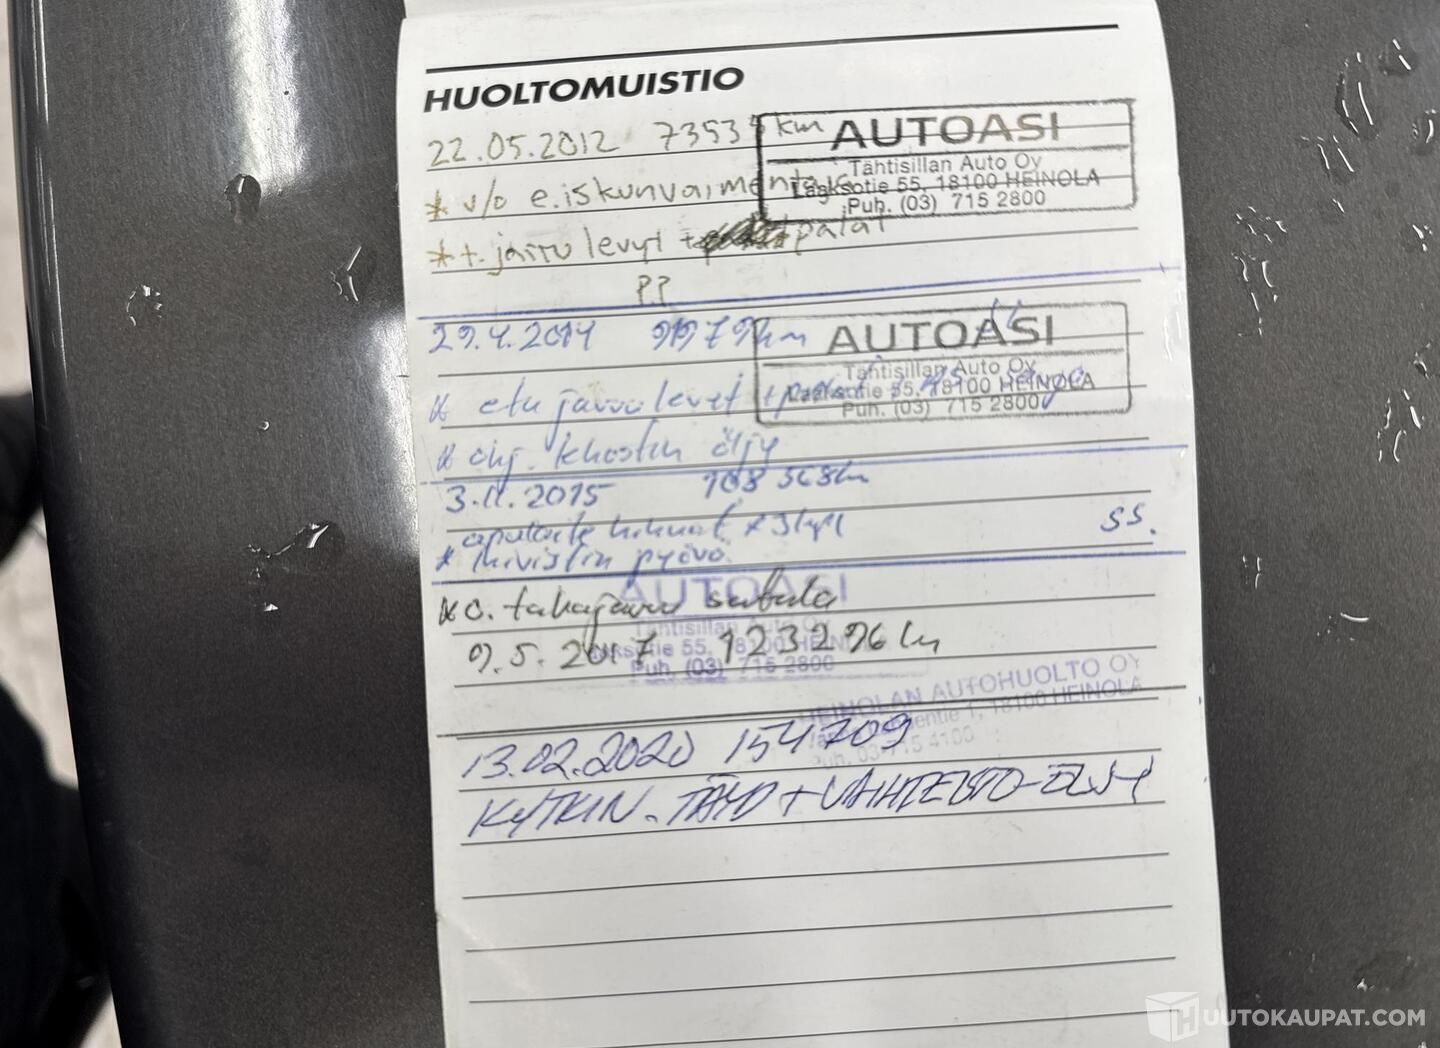 HUOLTOMUISTIO
22.05.2012 73535 km
AUTOASI
Tähtisillan Auto Oy
Laaksotie 55, 18100 HEINOLA
Puh. (03) 715 2800
* v/o e.iskunvaimentaja
* t. jarru levyt + palat
P.P
29.4.2014 km
AUTOASI
Tähtisillan Auto Oy
Laaksotie 55, 18100 HEINOLA
Puh. (03) 715 2800
* etu jarru levet +
* ohj. tehostin öljy
3.11.2015 108 568 km
apulaite hihnat +
SS.
* kivistin pyörö
AUTOASI
Tähtisillan Auto Oy
Laaksotie 55, 18100 HEINOLA
Puh. (03) 715 2800
* o. takajarru satula
9.5.2017 123296 km
HEINOLAN AUTOHUOLTO OY
1, 18100 HEINOLA
Puh. 03-715 4100
13.02.2020 154709
KYTKIN. TÄYD + VAIHTEISTO-ÖLJY
HUUTOKAUPAT.COM